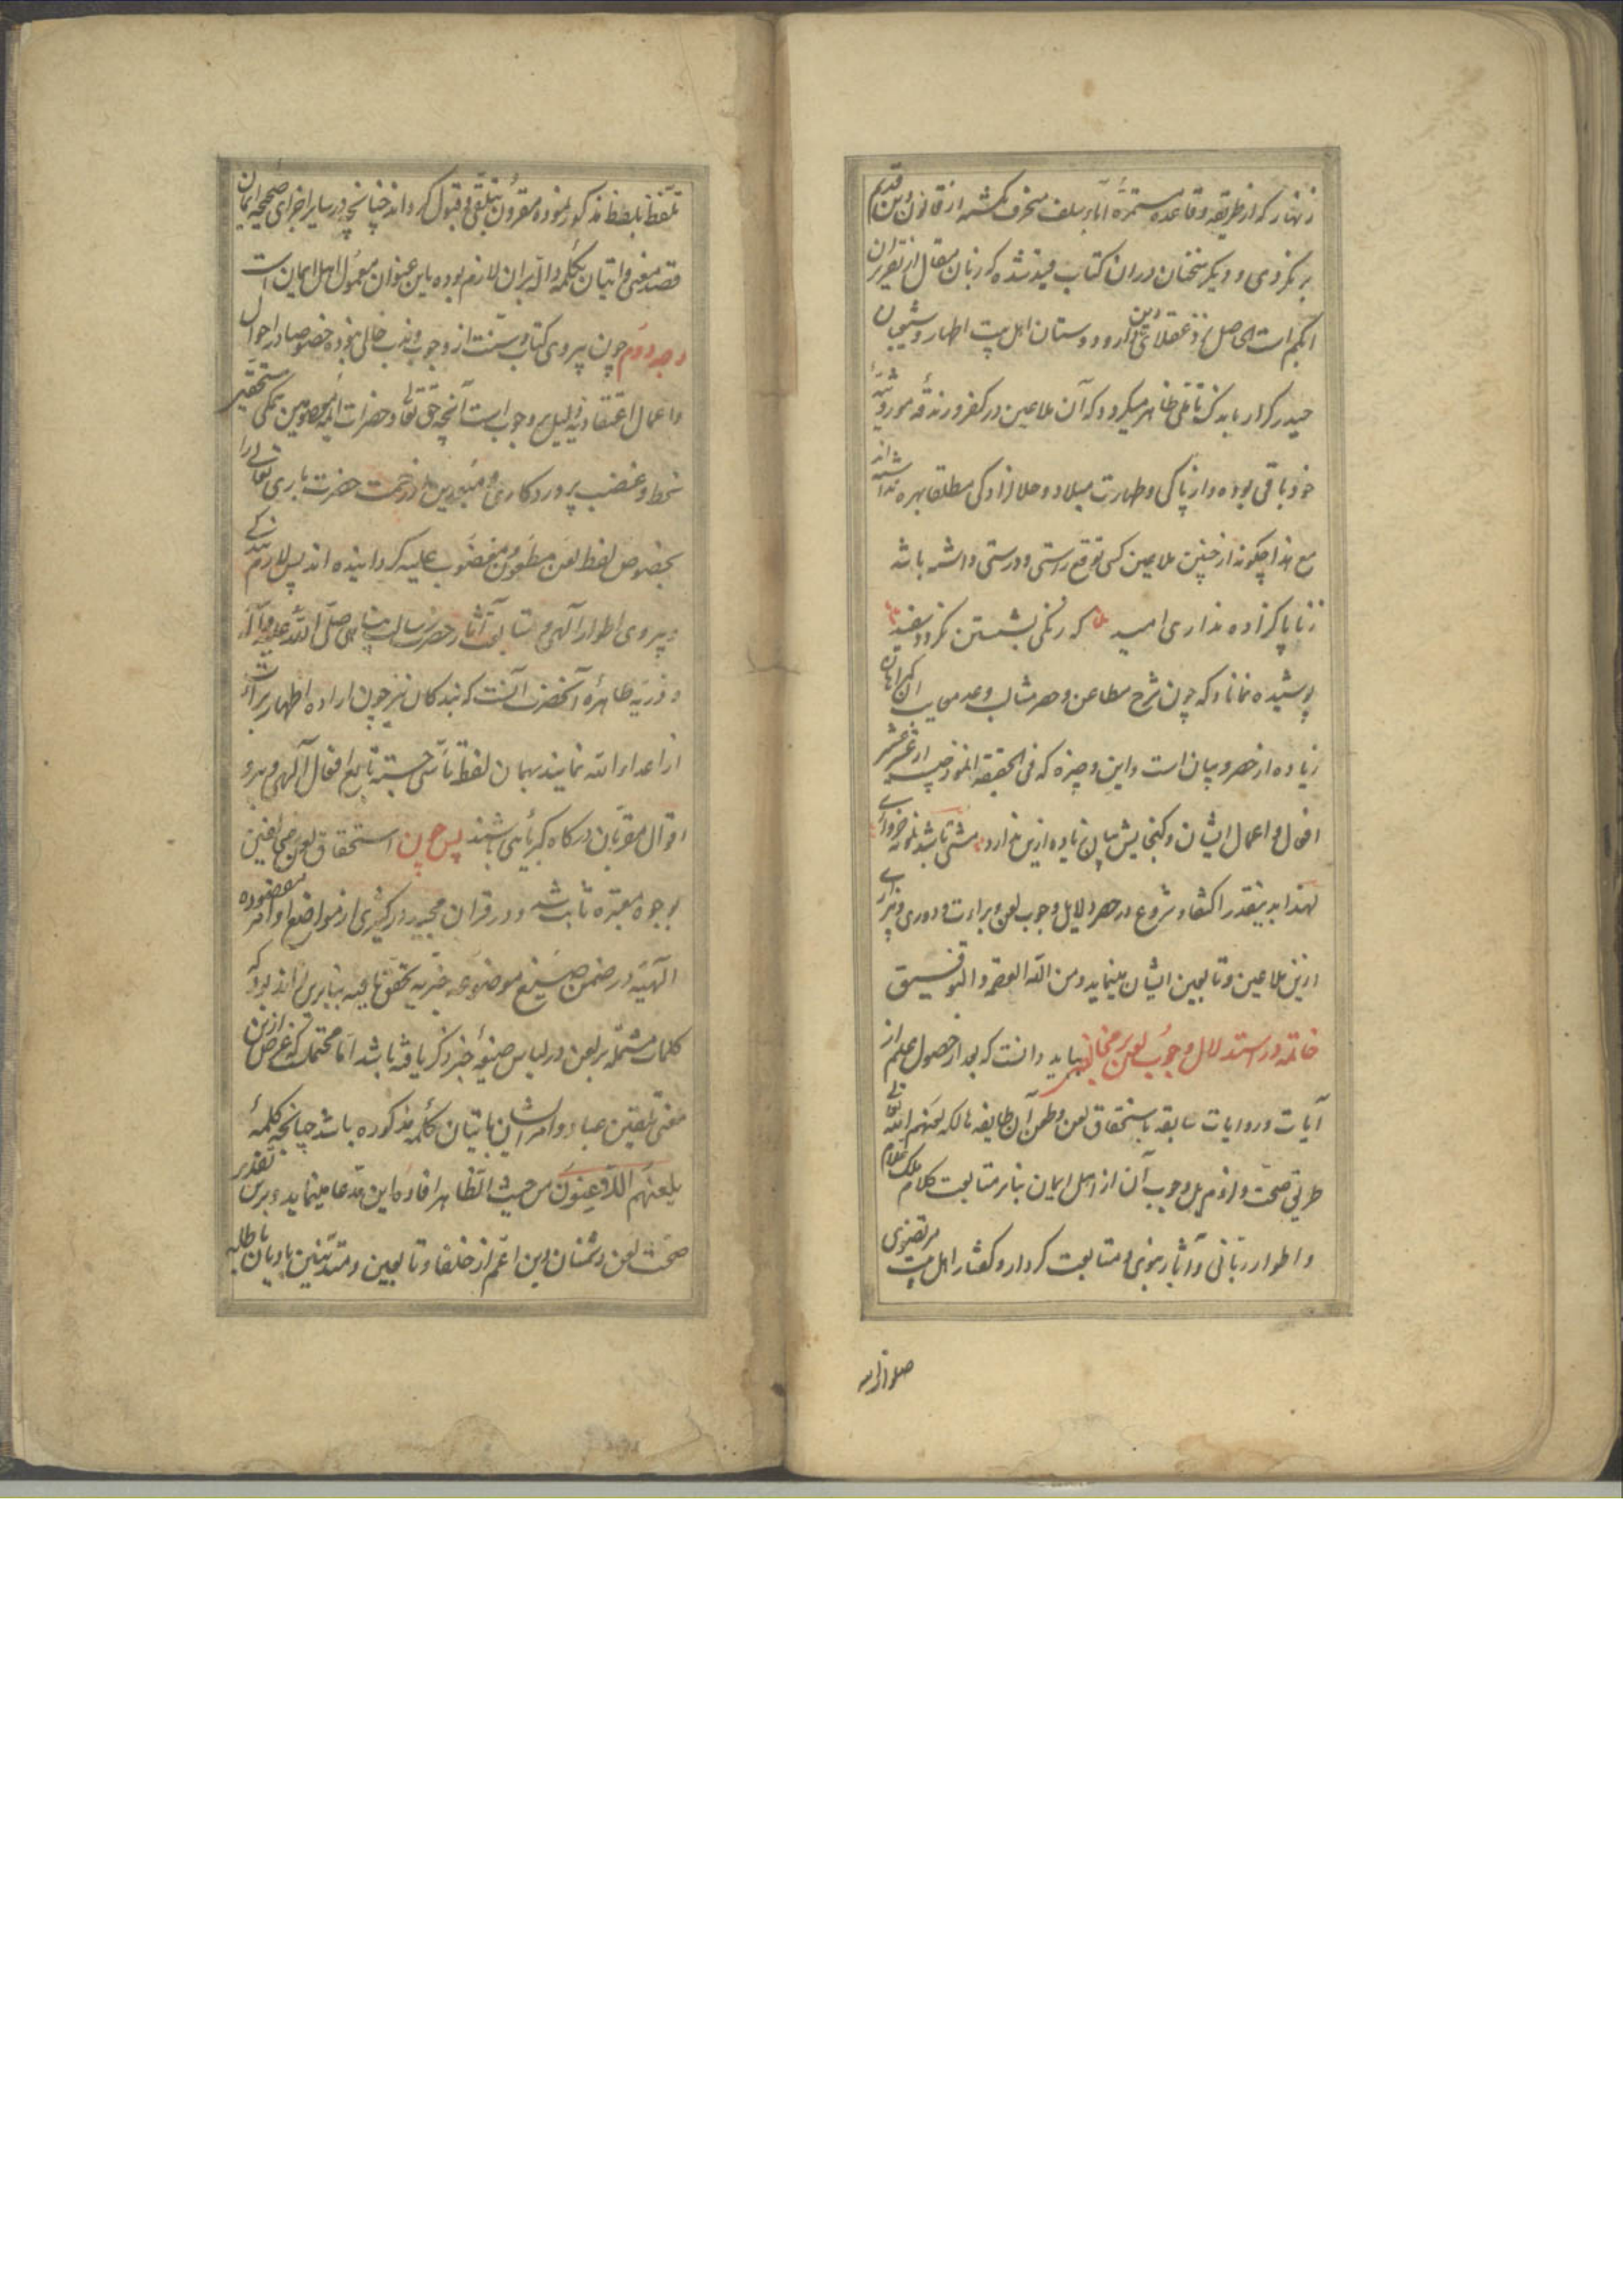 زنهار که از طریقه و قاعده مستمره آباء سلف منحرف نگشته از قانون دین قدیم
بر نگردی و دیگر سخنان در ان کتاب قید شده که زبان مقال از تقریر ان
ابکم است حاصل نزد عقلای دین دار و دوستان اهل بیت اطهار و شیعیان
حیدر کرار باندک تاملی ظاهر میگردد که آن ملاعین در کفر و زندقه موروثی
خود باقی بوده و از پاکی و طهارت میلاد و حلال زادگی مطلقا بهره نداشته اند
مع هذا چگونه از چنین ملاعین کسی توقع راستی و درستی داشته باشد
ز ناپاک زاده مداری امید که زنگی بشستن نگردد سفید
پوشیده نماند که چون شرح مطاعن و حصر مثالب و عد معایب ان گمراهان
زیاده از حصر و بیان است و این وجیزه که فی الحقیقه انموذجیست از عشر عشیر
افعال و اعمال ایشان و گنجایش بیان زیاده ازین ندارد مشتی باشد نمونه خرواری
لهذا بدینقدر اکتفا و شروع در حصر دلایل وجوب لعن و براءت و دوری و بیزاری
ازین ملاعین و تابعین ایشان مینماید و من الله العصمه و التوفیق
خاتمه در استدلال وجوب لعن بر مخالفین بباید دانست که بعد از حصول علم از
آیات و روایات سابقه باستحقاق لعن و طعن آن طایفه هالکه لعنهم الله تعالی
طریق صحت و لزوم بل وجوب آن از اهل ایمان بنابر متابعت کلام ملک علام
و اطوار ربانی و آثار نبوی و متابعت کردار و گفتار اهل بیت مرتضوی
صلوات الله
تلفظ بلفظ مذکور نموده مقرون بتلقی و قبول گرداند چنانچه در سایر اجزای صحیحه ایمان
قصد معنی و اتیان بکلمه داله بران لازم بوده باین عنوان معمول اهل ایمان است
وجه دوم چون پیروی کتاب و سنت از وجوب و ندب خالی نبوده خصوصا در احوال
و اعمال اعتقادیه دلیل وجوب است آنچه حق تعالی و حضرات ائمه معصومین مستحقین
سخط و غضب پروردکاری و مبعدین از رحمت حضرت باری تعالی را
بخصوص لفظ لعن مطعون و مغضوب علیه گردانیده اند پس لازم
و پیروی اطوار آلهی و متابعت آثار حضرت رسالت پناهی صلی الله علیه و آله
و ذریه طاهره آنحضرت آنست که بندکان نیز چون اراده اظهار برائت
از اعداء الله نمایند بهمان لفظ تاسی جسته تابع افعال آلهی و پیرو
اقوال مقربان درگاه کبریائی باشند پس چون استحقاق لعن مخالفین
بوجوه معتبره ثابت شد و در قرآن مجید در کثیری از مواضع اوامر مقصوده
الهیه در ضمن صیغ موضوعه خبریه تحقق یافته بنابرین تواند بود که
کلمات مشتمله بر لعن در لباس صیغه خبر ذکر یافته باشد اما محتملست که غرض ازین
معنی تلقین عباد و امر ایشان باتیان کلمه مذکوره باشد چنانچه کلمه
یلعنهم اللاعنون من حیث الظاهر افاده این مدعا مینماید و برین تقدیر
صحت لعن دشمنان دین اعم از خلفا و تابعین و متدینین بادیان باطله